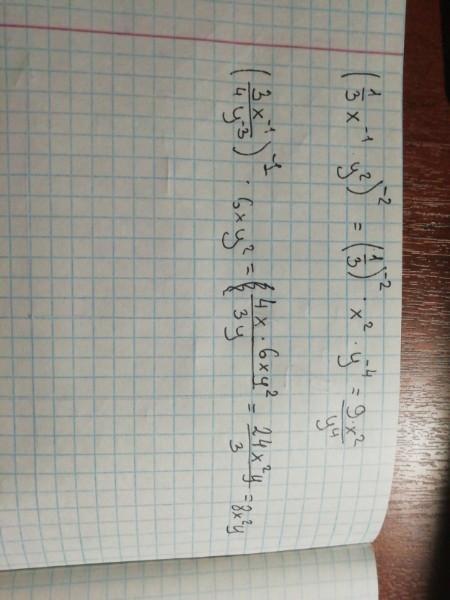 (1/3 x⁻¹ · y²)⁻² = (1/3)⁻² · x² · y⁻⁴ = 9·x²/y⁴
(3x⁻¹/4y⁻³)⁻¹ · 6xy² = 4x · 6xy²/3y = 24x²y/3 = 8x²y